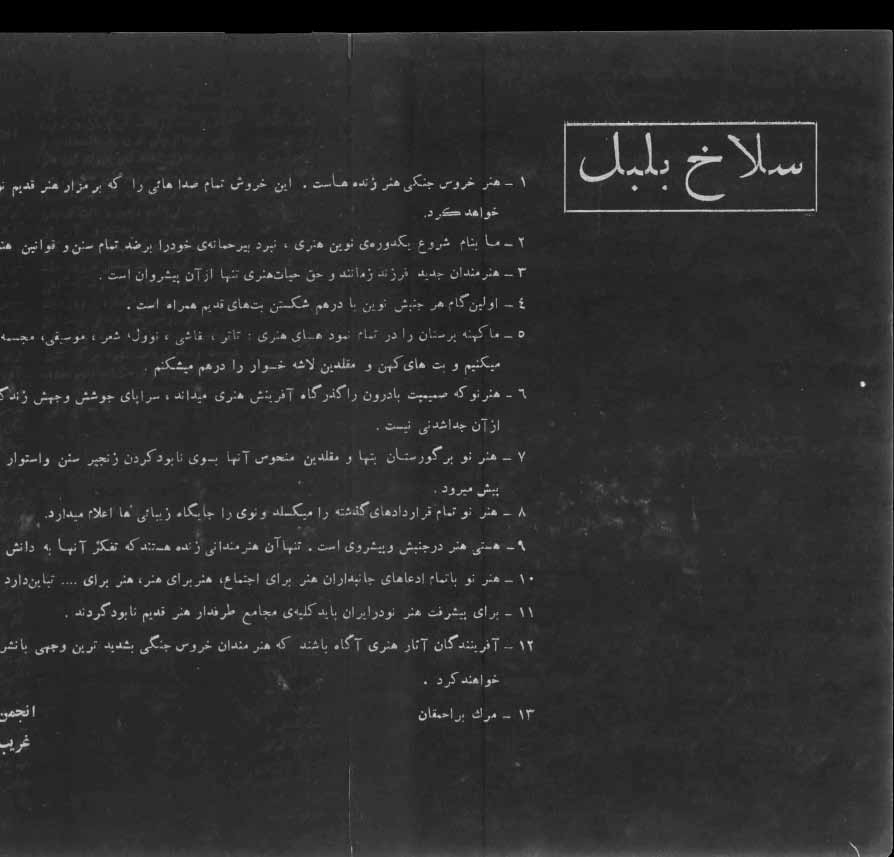 سلاخ بلبل
۱ ـ هنر خروس جنگی هنر زنده هاست . این خروش تمام صدا هائی را که بر مزار هنر قدیم
خواهد کرد.
۲ ـ ما بنام شروع یکدوره‌ی نوین هنری ، نبرد بیرحمانه‌ی خودرا برضد تمام سنن و قوانین
۳ ـ هنرمندان جدید فرزند زمانند و حق حیات‌هنری تنها ازآن پیشروان است .
٤ ـ اولین گام هر جنبش نوین با درهم شکستن بت‌های قدیم همراه است .
٥ ـ ماکهنه پرستان را در تمام نمود هـای هنری : تاتر ، نقاشی ، نوول، شعر ، موسیقی، مجسمه
میکنیم و بت های کهن و مقلدین لاشه خـوار را درهم میشکنم .
٦ ـ هنرنوکه صمیمیت بادرون راگذرگاه آفرینش هنری میداند ، سراپای جوشش وجهش
ازآن جداشدنی نیست .
۷ ـ هنر نو برگورستـان بتها و مقلدین منحوس آنها بسوی نابودکردن زنجیر سنن واستوار
پیش میرود .
۸ ـ هنر نو تمام قراردادهای گذشته را میکسلد ونوی را جایگاه زیبائی ها اعلام میدارد.
۹ ـ هستی هنر درجنبش وپیشروی است . تنهاآن هنرمندانی زنده هستندکه تفکر آنهـا به دانش
۱۰ ـ هنر نو باتمام ادعاهای جانبداران هنر برای اجتماع، هنربرای هنر، هنر برای .... تباین‌دارد
۱۱ ـ برای پیشرفت هنر نودرایران بایدکلیه‌ی مجامع طرفدار هنر قدیم نابودگردند .
۱۲ ـ آفرینندگان آثار هنری آگاه باشند که هنر مندان خروس جنگی بشدید ترین وجهی بانشر
خواهندکرد .
۱۳ ـ مرك براحمقان
انجمن
غریب